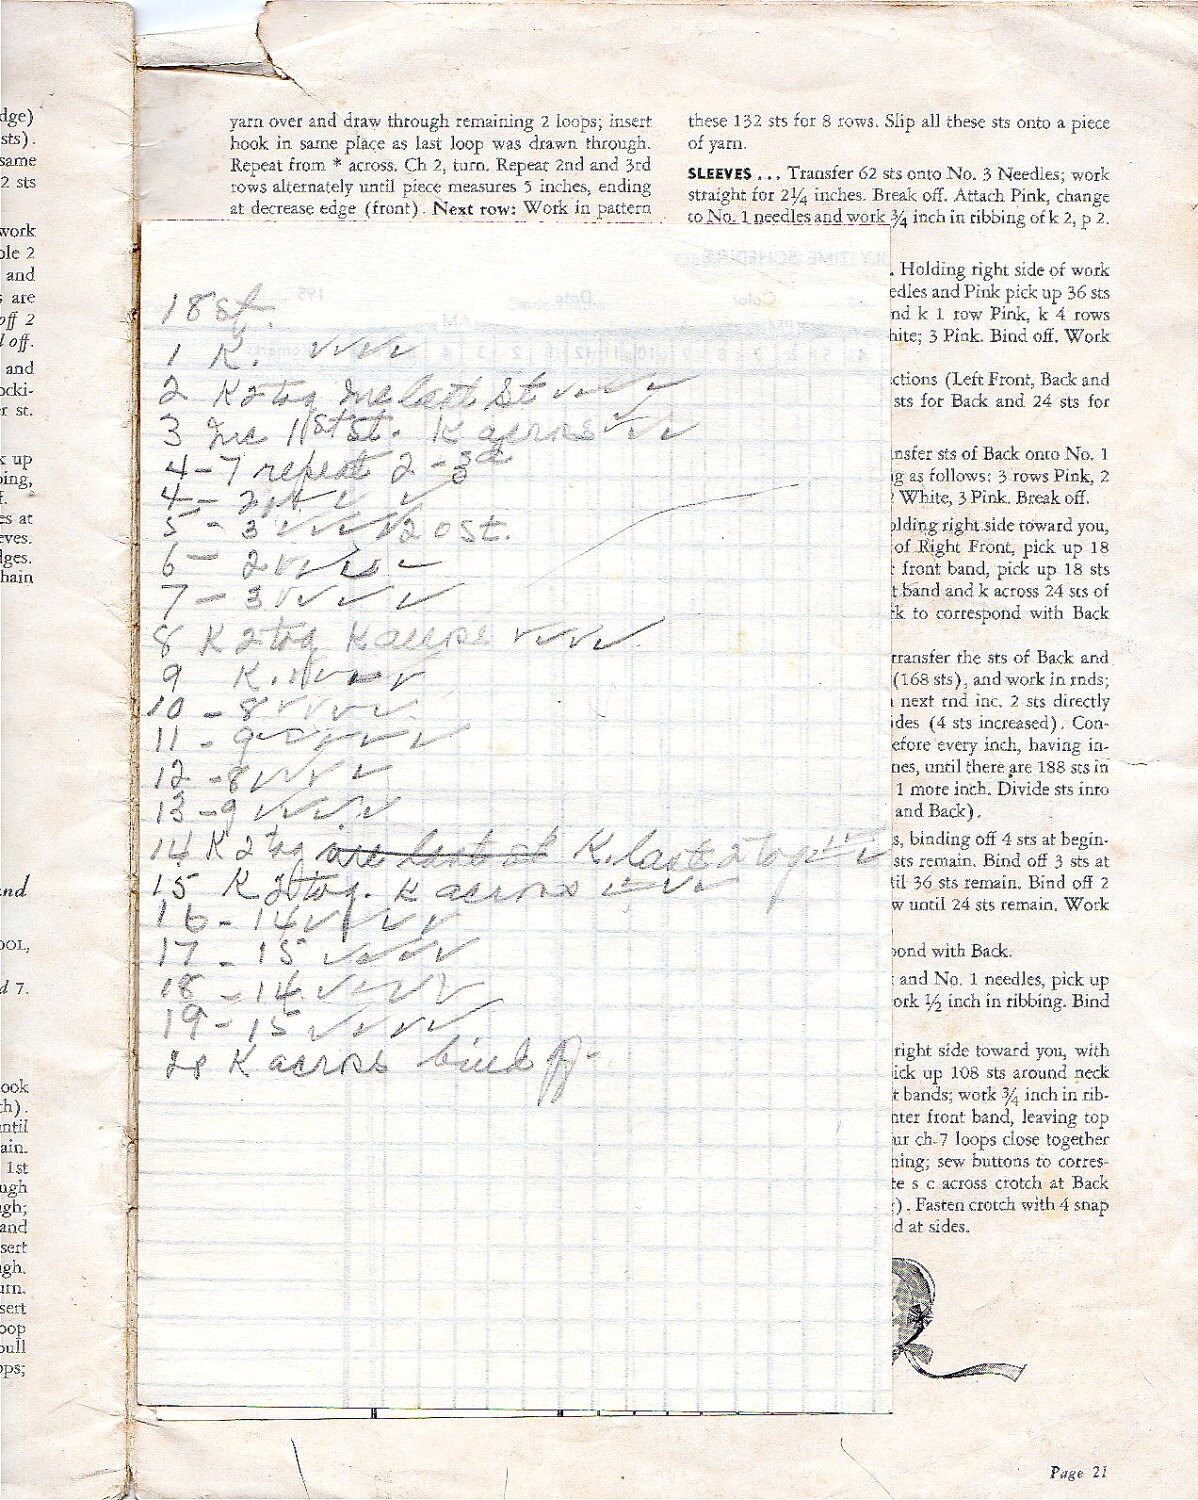 dge)
sts).
same
2 sts
work
ble 2
and
s are
off 2
l off.
and
ocki-
r st.
k up
ping,
f.
es at
eves.
dges.
hain
and
OOL,
d 7.
ook
ch).
until
ain.
1st
ugh
gh;
and
sert
gh.
urn.
sert
oop
pull
ops;
yarn over and draw through remaining 2 loops; insert
hook in same place as last loop was drawn through.
Repeat from * across. Ch 2, turn. Repeat 2nd and 3rd
rows alternately until piece measures 5 inches, ending
at decrease edge (front). Next row: Work in pattern
18 st.
1 K. ✓✓✓✓
2 K 2 tog Inc last St ✓✓✓✓
3 Inc 1st st. K across ✓✓✓
4-7 repeat 2-3
4- 2 ✓ ✓
5- 3 ✓✓✓✓ 20 st.
6- 2 ✓✓✓✓
7- 3 ✓✓✓✓
8 K 2 tog K across ✓✓✓✓
9 K. ✓✓✓✓
10-8 ✓✓✓✓
11-9 ✓✓✓✓
12-8 ✓✓✓✓
13-9 ✓✓✓✓
14 K 2 tog last st K. last 2 tog
15 K 2 tog. K across ✓✓✓✓
16-14 ✓✓✓✓
17-15 ✓✓✓✓
18-14 ✓✓✓✓
19-15 ✓✓✓✓
K across bind off
these 132 sts for 8 rows. Slip all these sts onto a piece
of yarn.
SLEEVES . . . Transfer 62 sts onto No. 3 Needles; work
straight for 2¼ inches. Break off. Attach Pink, change
to No. 1 needles and work ¾ inch in ribbing of k 2, p 2.
. Holding right side of work
edles and Pink pick up 36 sts
nd k 1 row Pink, k 4 rows
hite; 3 Pink. Bind off. Work
ctions (Left Front, Back and
sts for Back and 24 sts for
nsfer sts of Back onto No. 1
g as follows: 3 rows Pink, 2
White, 3 Pink. Break off.
olding right side toward you,
of Right Front, pick up 18
front band, pick up 18 sts
t band and k across 24 sts of
rk to correspond with Back
transfer the sts of Back and
(168 sts), and work in rnds;
next rnd inc. 2 sts directly
ides (4 sts increased). Con-
efore every inch, having in-
nes, until there are 188 sts in
1 more inch. Divide sts into
and Back).
s, binding off 4 sts at begin-
sts remain. Bind off 3 sts at
til 36 sts remain. Bind off 2
w until 24 sts remain. Work
pond with Back.
and No. 1 needles, pick up
ork ½ inch in ribbing. Bind
right side toward you, with
ick up 108 sts around neck
t bands; work ¾ inch in rib-
nter front band, leaving top
ur ch-7 loops close together
ning; sew buttons to corres-
te s c across crotch at Back
). Fasten crotch with 4 snap
d at sides.
Page 21